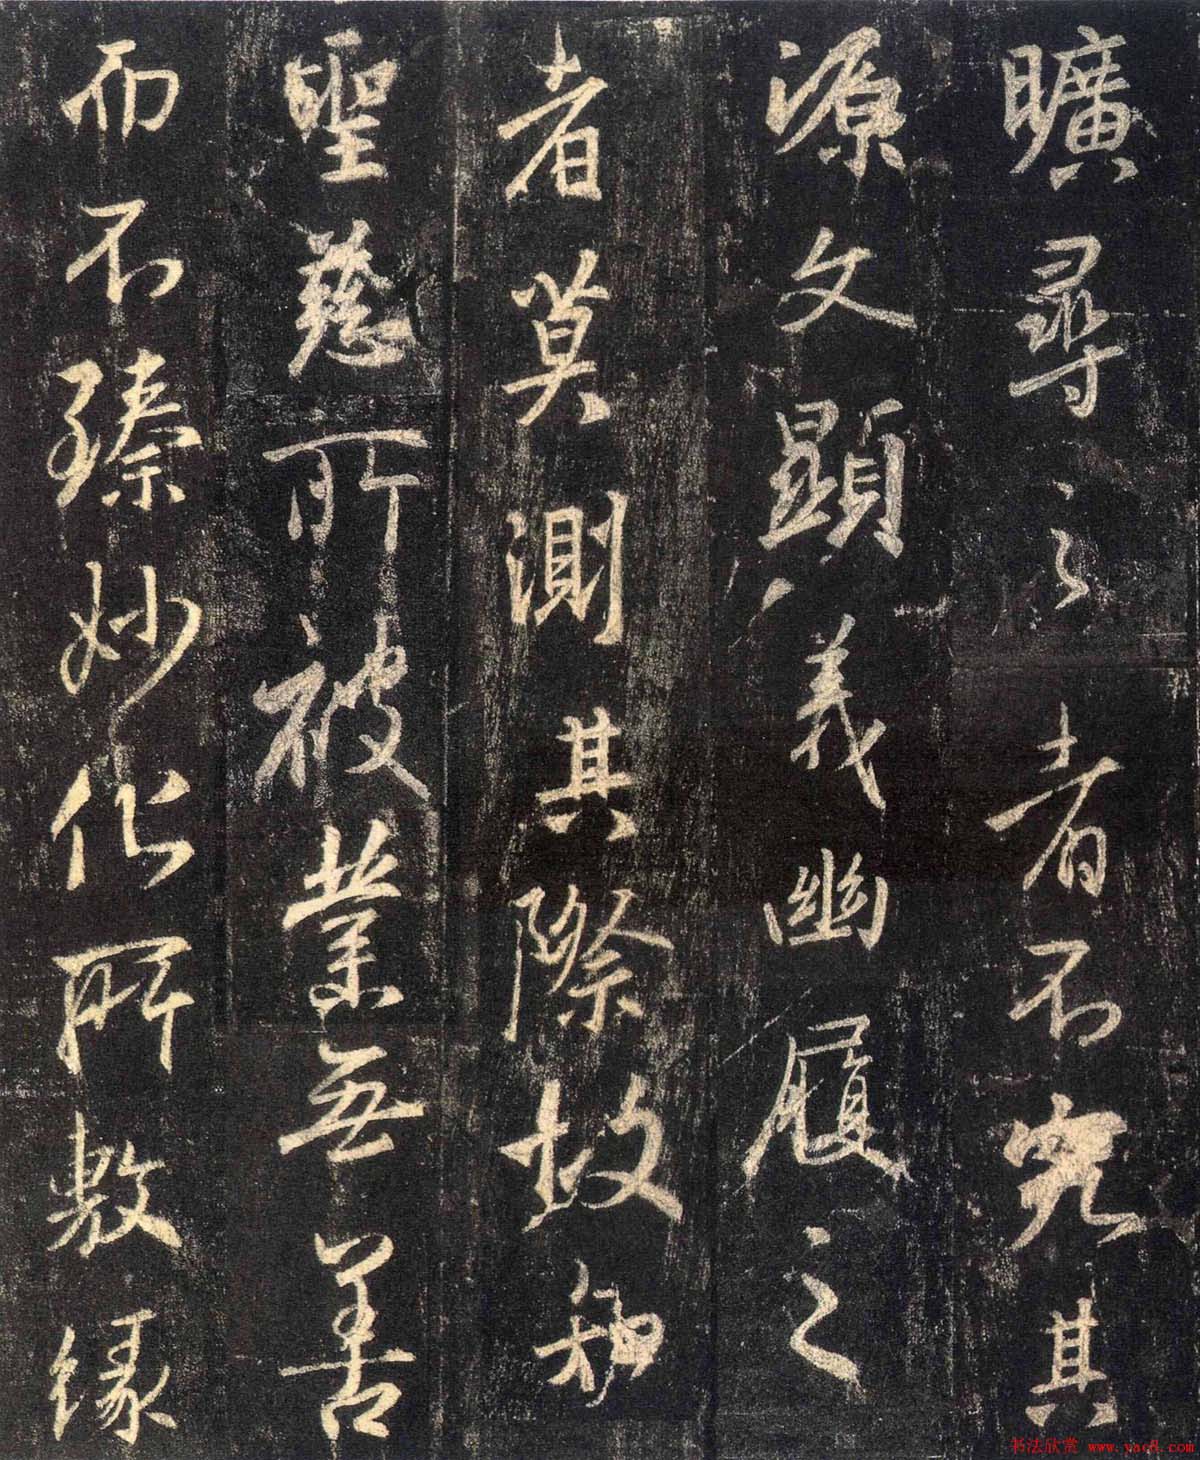 曠尋之者不究其
源文顯義幽履之
者莫測其際故知
聖慈所被業無善
而不臻妙化所敷緣
书法欣赏 www.yac8.com